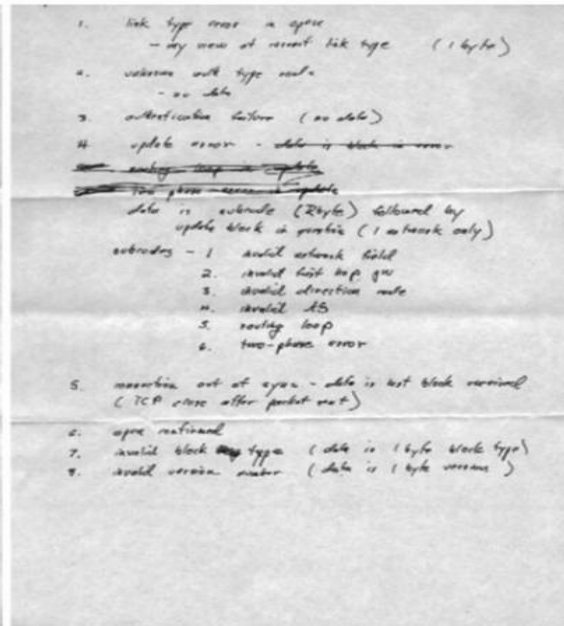 1. link type error in open
- my view of correct link type (1 byte)
2. unknown auth type code
- no data
3. authentication failure (no data)
4. update error - data is block in error
routing loop in update
two phase error in update
data is subcode (2 byte) followed by
update block in question (1 network only)
subcodes - 1 invalid network field
2. invalid first hop gw
3. invalid direction code
4. invalid AS
5. routing loop
6. two-phase error
5. connection out of sync - data is last block received
(TCP close after packet sent)
6. open confirmed
7. invalid block type (data is 1 byte block type)
8. invalid version number (data is 1 byte version)